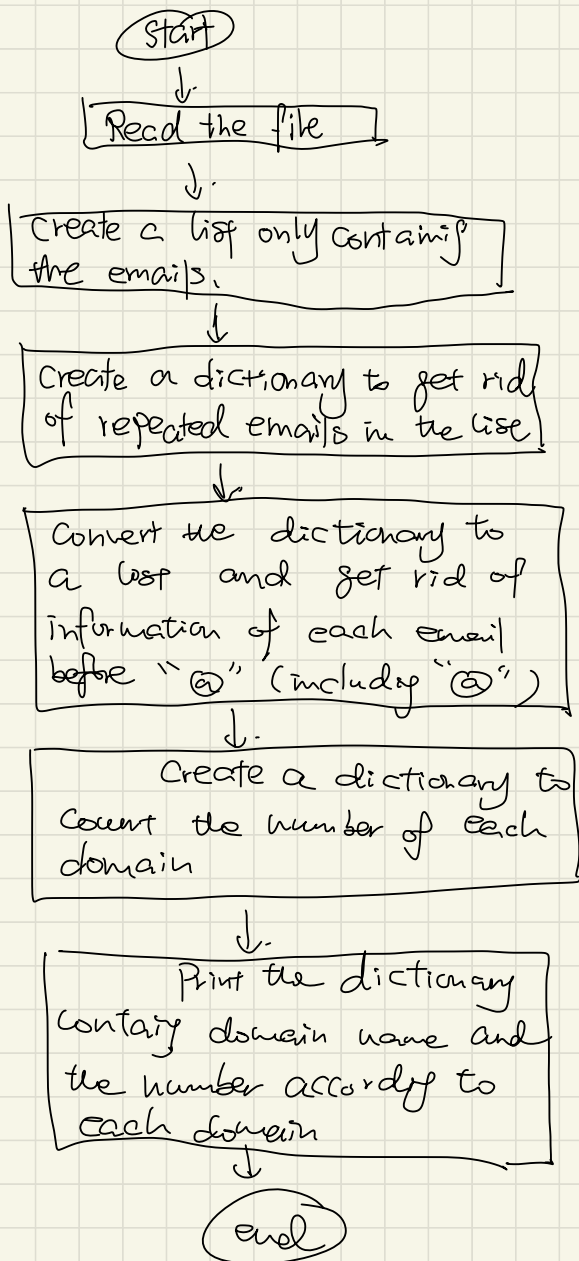 Start
Read the file
Create a list only containig
the emails.
Create a dictionary to get rid
of repeated emails in the list
Convert the dictionary to
a list and get rid of
information of each email
before "@" (includig "@")
Create a dictionary to
Count the number of each
domain
Print the dictionary
Containg domain name and
the number accordig to
each domain
end